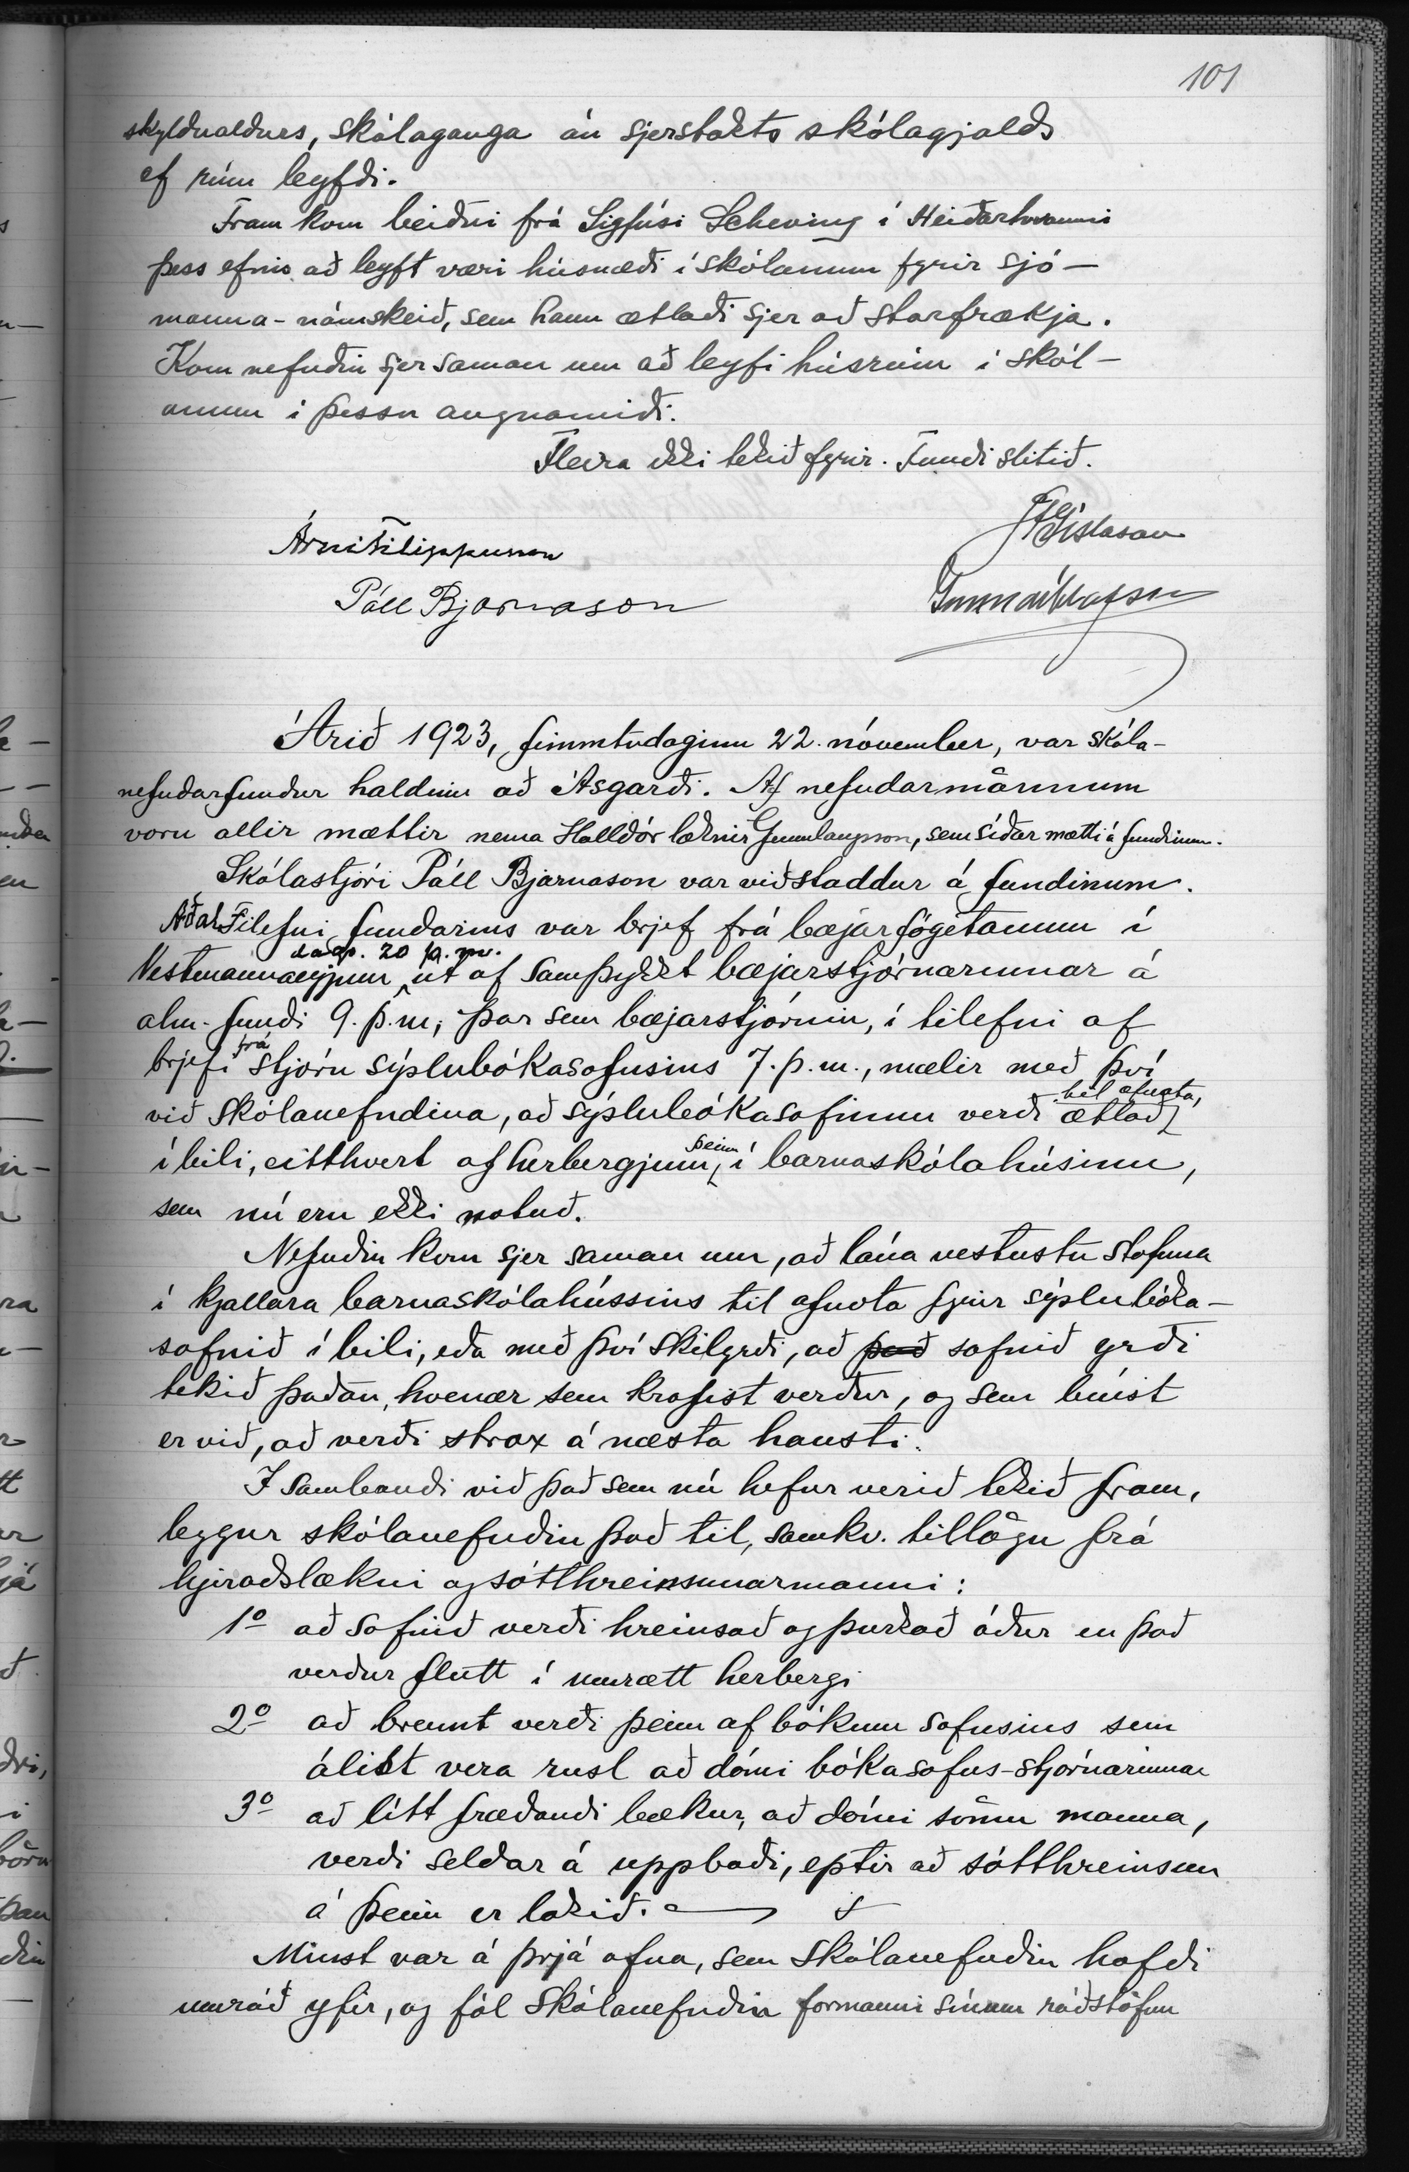 101
skylduáldurs, skólaganga án sjerstakts skólagjalds
ef rúm leyfði.
Fram kom beiðni frá Sigfúsi Scheving í Heiðarhvammi
þess efnis að leyft væri húsnæði í skólanum fyrir sjó-
manna-námskeið, sem hann ætlaði sjer að starfrækja.
Kom nefndin sjer saman um að leyfi húsrúm í skól-
anum í þessu augnamiði.
Fleira ekki tekið fyrir. Fundi slitið.
Árni Filippusson
JGíslason
Páll Bjarnason
Gunnar Ólafsson
Árið 1923, fimmtudaginn 22. nóvember, var skóla-
nefndarfundur haldinn að Ásgarði. Af nefndarmönnum
voru allir mættir nema Halldór læknir Gunnlaugsson, sem síðar mætti á fundinum.
Skólastjóri Páll Bjarnason var viðstaddur á fundinum.
Aðal Tilefni fundarins var brjef frá bæjarfógetanum í
Vestmannaeyjum dags. 20 þ. m. út af samþykkt bæjarstjórnarinnar á
alm. fundi 9. þ. m., þar sem bæjarstjórnin, í tilefni af
brjefi frá stjórn sýslubókasafnsins 7. þ. m., mælir með því
við skólanefndina, að sýslubókasafninu verði ætlað til afnota,
í bili, eitthvert af herbergjum þeim, í barnaskólahúsinu,
sem nú eru ekki notuð.
Nefndin kom sjer saman um, að lána vestustu stofuna
í kjallara barnaskólahússins til afnota fyrir sýslubóka-
safnið í bili, eða með því skilyrði, að það safnið yrði
tekið þaðan, hvenær sem krafist verður, og sem búist
er við, að verði strax á næsta hausti.
Í sambandi við það sem nú hefur verið tekið fram,
leggur skólanefndin það til, samkv. tillögu frá
hjeraðslækni og sótthreinsunarmanni:
1º að safnið verði hreinsað og þurkað áður en það
verður flutt í umrætt herbergi
2º að brennt verði þeim af bókum safnsins sem
álíst vera rusl að dómi bókasafns-stjórnarinnar
3º að lítt fræðandi bækur, að dómi sömu manna,
verði seldar á uppboði, eptir að sótthreinsun
á þeim er lokið.
Minst var á þrjá ofna, sem skólanefndin hafði
umráð yfir, og fól skólanefndin formanni sínum ráðstöfun